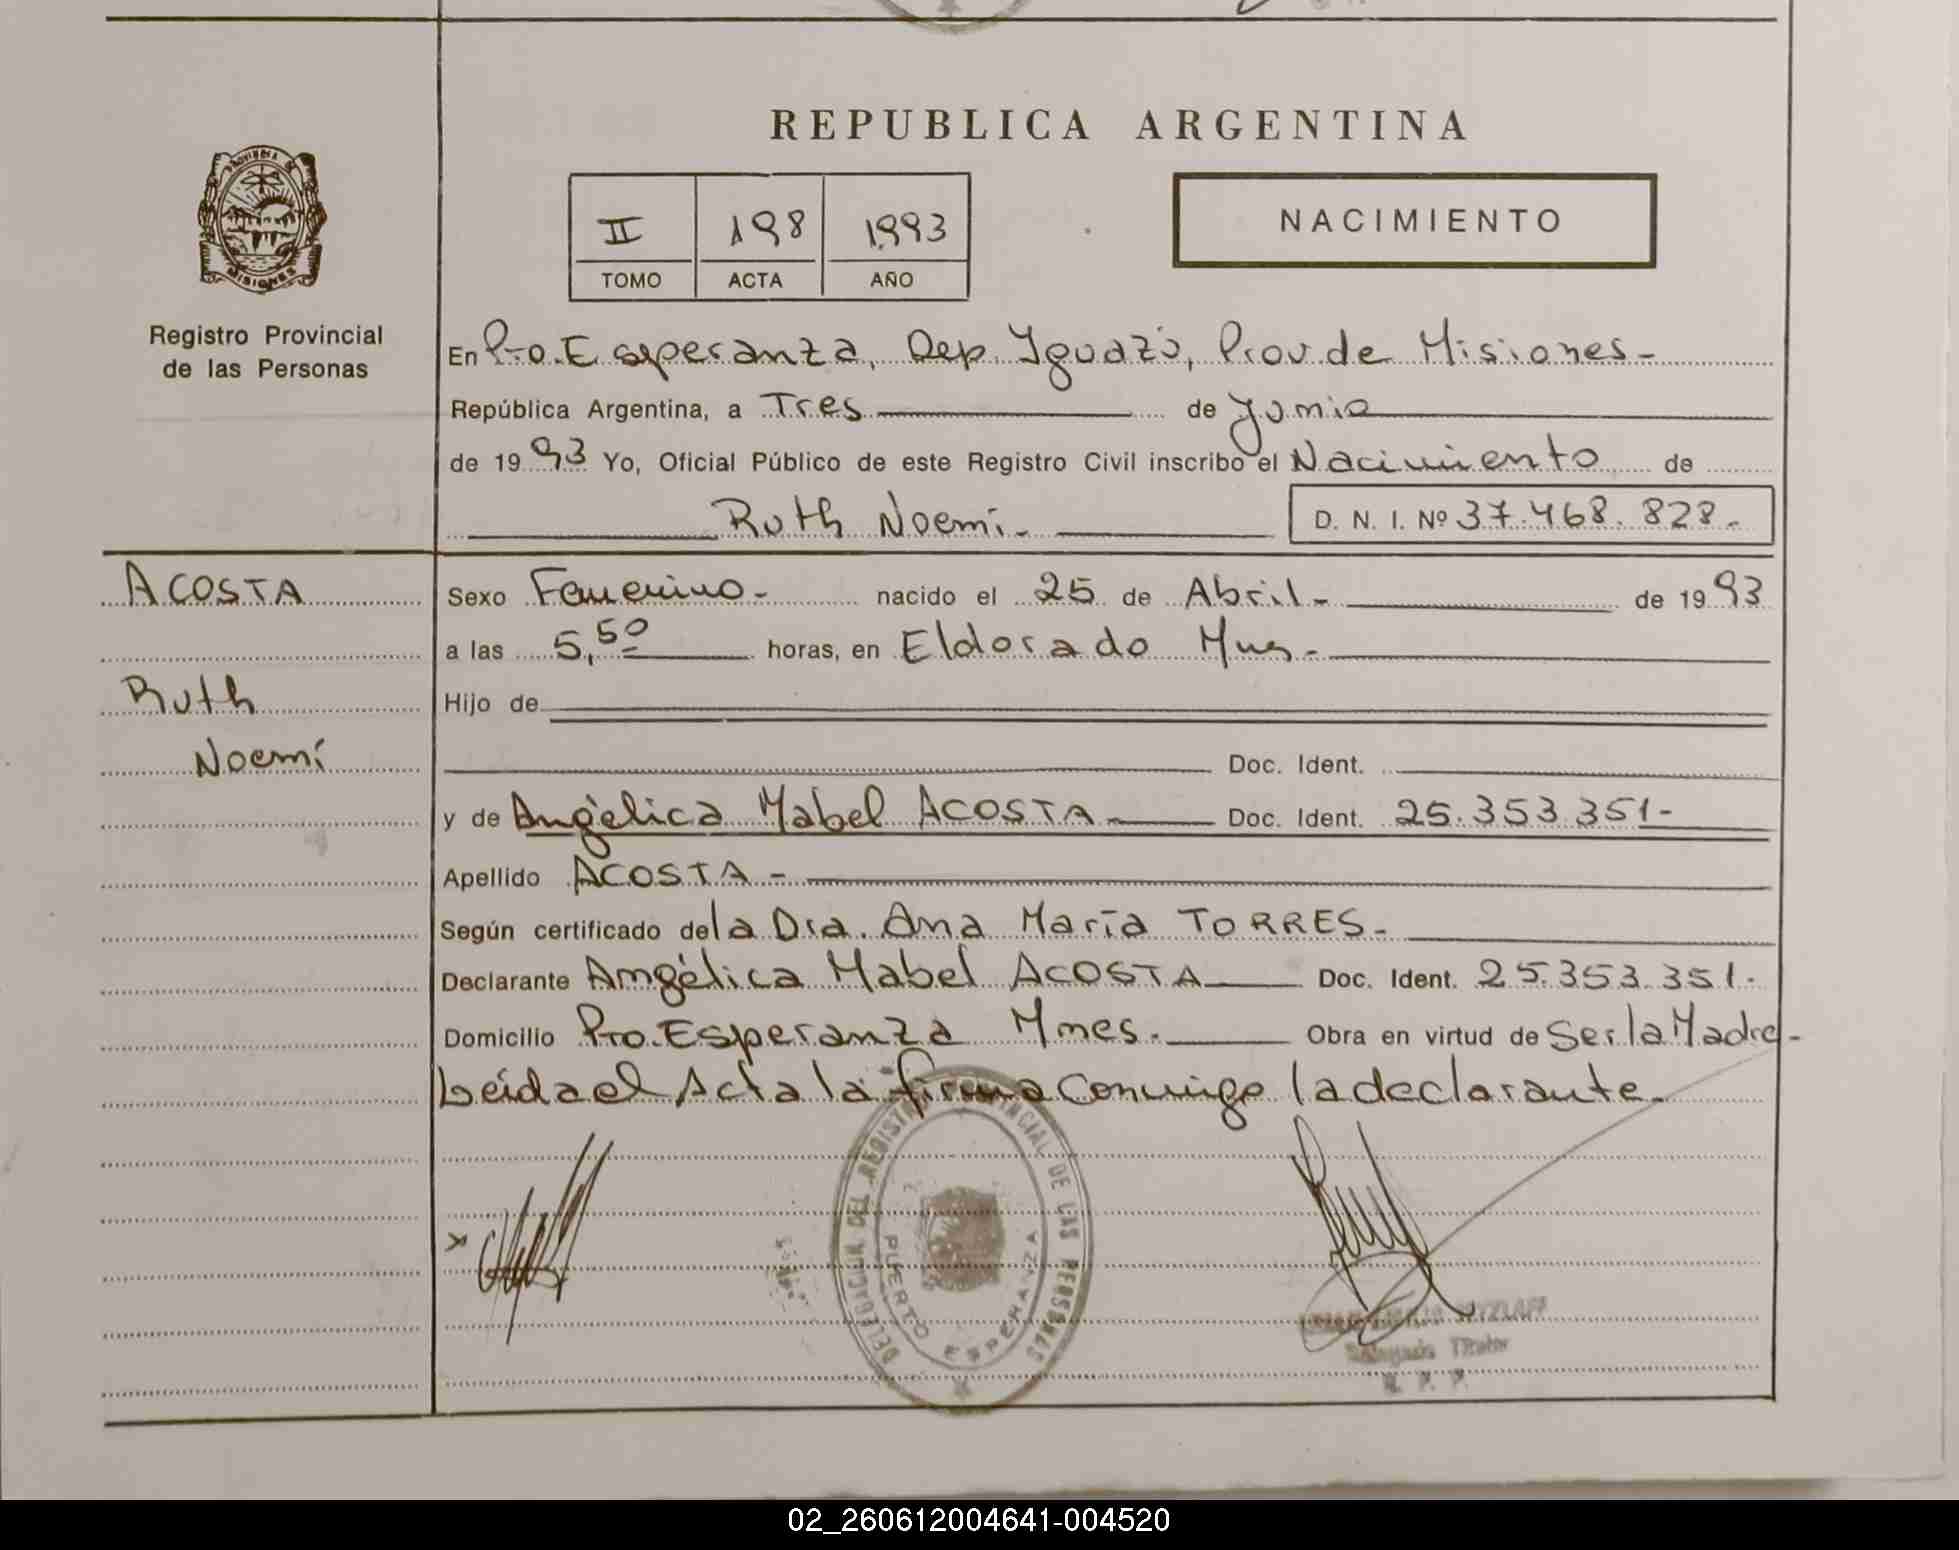 REPUBLICA ARGENTINA
PROVINCIA DE
MISIONES
Registro Provincial
de las Personas
II 198 1993
TOMO ACTA AÑO
NACIMIENTO
En Pto. Esperanza, Dep. Iguazú, Prov. de Misiones-
República Argentina, a Tres de Junio
de 1993 Yo, Oficial Público de este Registro Civil inscribo el Nacimiento de
Ruth Noemí.- D. N. I. Nº 37.468.828.-
ACOSTA
Ruth
Noemí
Sexo Femenino- nacido el 25 de Abril- de 1993
a las 5,50 horas, en Eldorado Mnes.-
Hijo de
Doc. Ident.
y de Angélica Mabel ACOSTA- Doc. Ident. 25.353.351-
Apellido ACOSTA-
Según certificado de la Dra. Ana María TORRES.-
Declarante Angélica Mabel ACOSTA Doc. Ident. 25.353.351.-
Domicilio Pto. Esperanza Mnes.- Obra en virtud de Ser la Madre-
Leída el Acta la firma Conmigo la declarante.-
x
DELEGACION DEL REGISTRO PROVINCIAL DE LAS PERSONAS
PUERTO ESPERANZA
Titular
R. P. P.
02_260612004641-004520